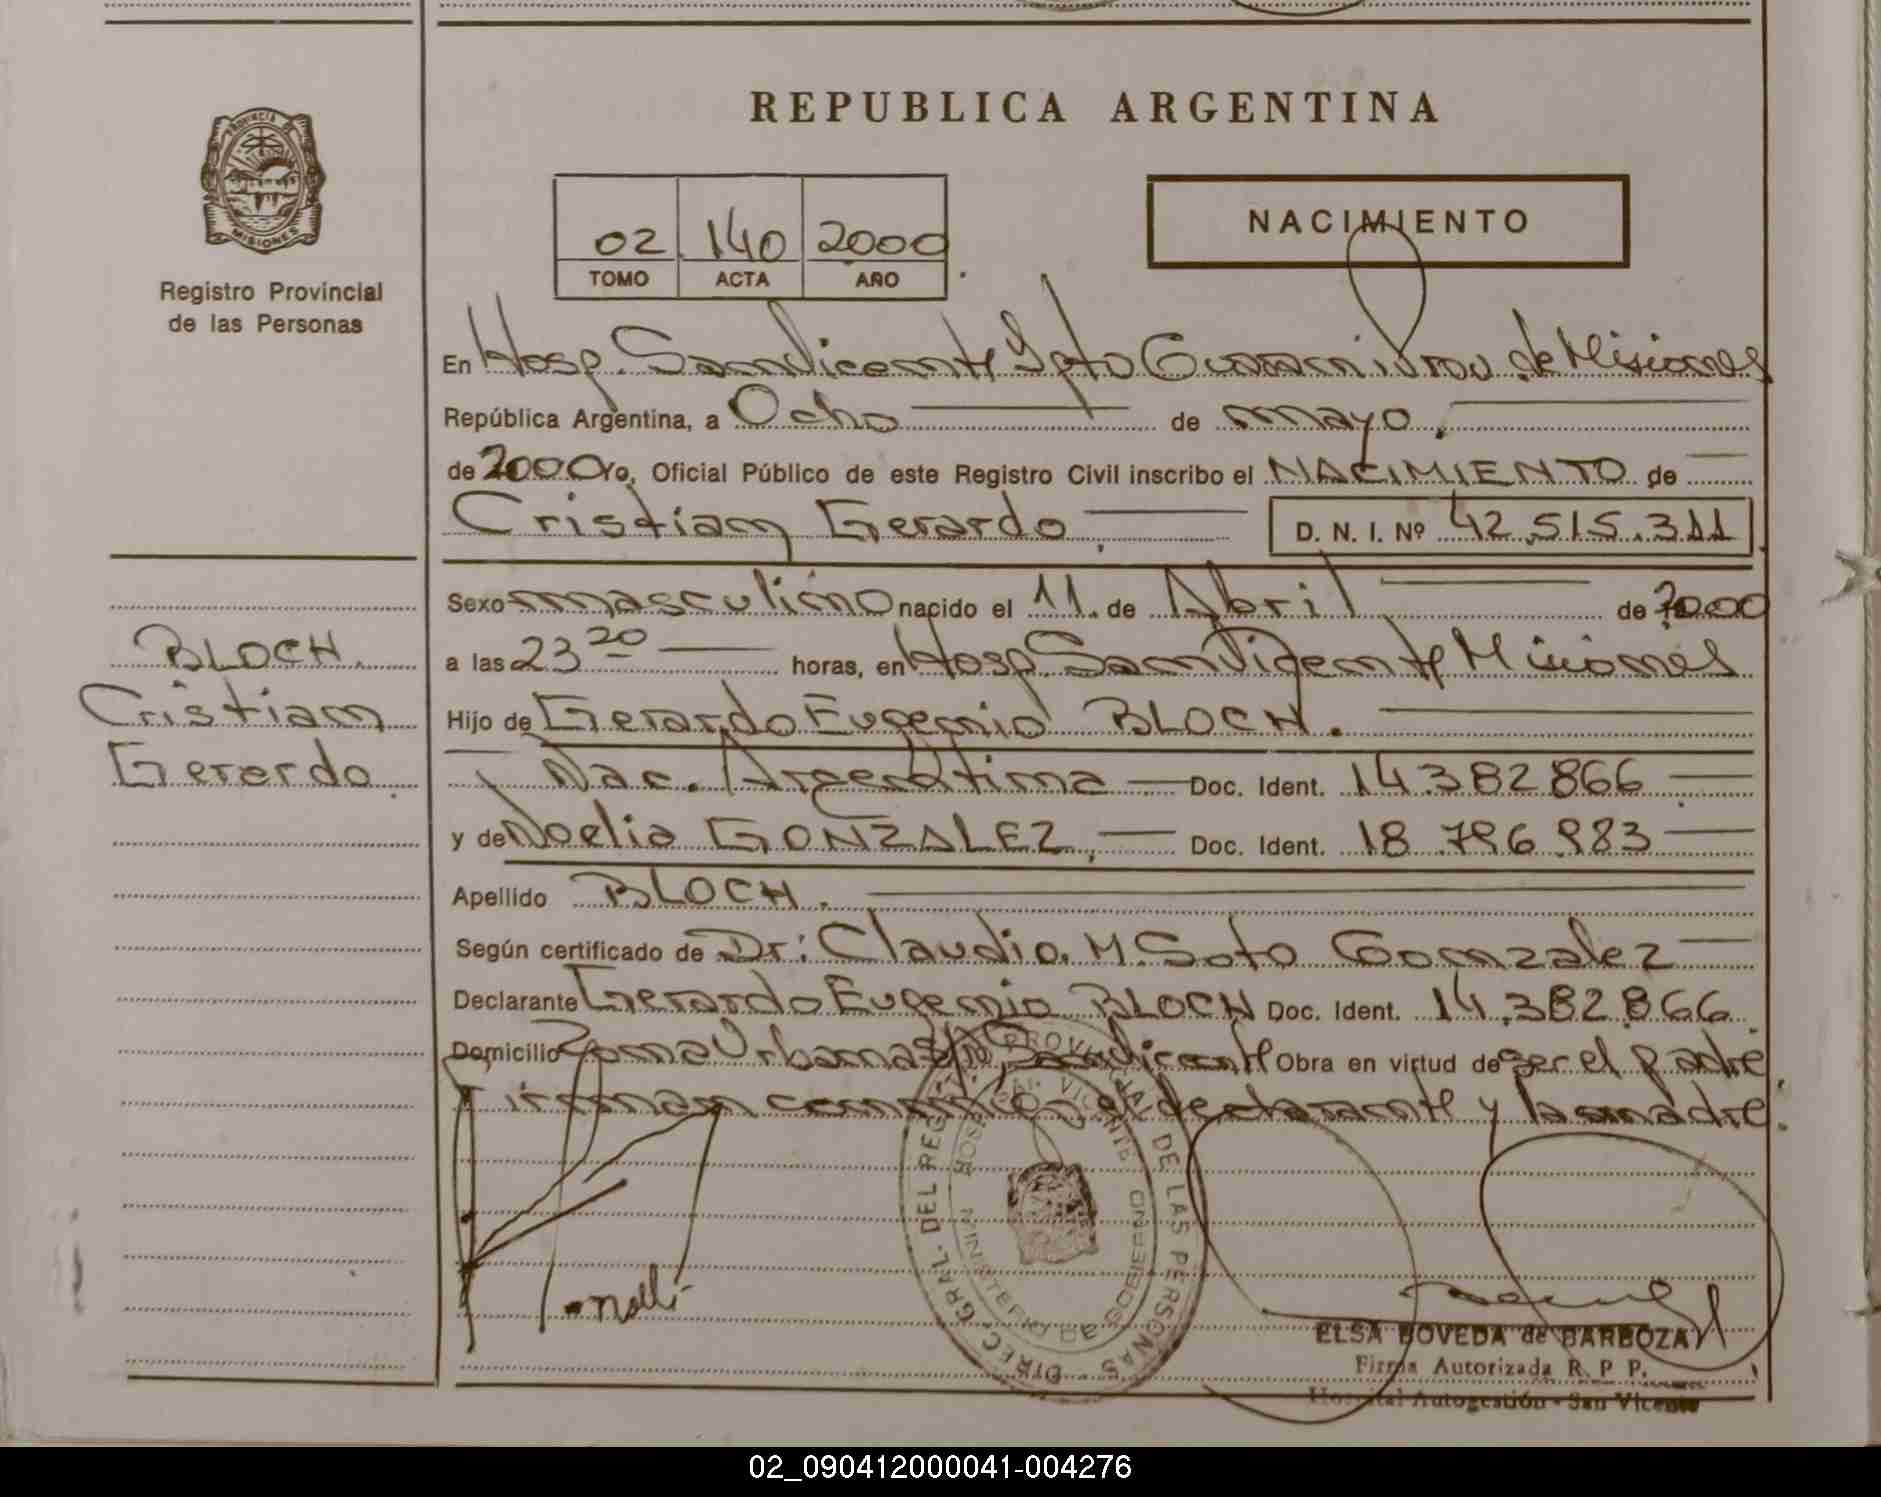 REPUBLICA ARGENTINA
PROVINCIA DE
MISIONES
Registro Provincial
de las Personas
02 140 2000
TOMO ACTA AÑO
NACIMIENTO
En Hosp. San Vicente Dpto Guarani Prov. de Misiones
República Argentina, a Ocho de mayo.
de 2000 Yo, Oficial Público de este Registro Civil inscribo el NACIMIENTO de
Cristian Gerardo. D. N. I. Nº 42.515.311
Sexo masculino nacido el 11. de Abril de 2000
a las 23 20 horas, en Hosp. San Vicente Misiones
Hijo de Gerardo Eugenio BLOCH.
Nac. Argentina Doc. Ident. 14.382.866
y de Noelia GONZALEZ. Doc. Ident. 18.796.983
Apellido BLOCH.
Según certificado de Dr: Claudio. M. Soto Gonzalez
Declarante Gerardo Eugenio BLOCH Doc. Ident. 14.382.866
Domicilio Zona Urbana San Vicente Obra en virtud de ser el padre
Firman conmigo el declarante y la madre.
BLOCH.
Cristian
Gerardo.
DIREC. GRAL. DEL REG. PROVINCIAL DE LAS PERSONAS
HOSP. SAN VICENTE
MINISTERIO DE GOBIERNO
ELSA BOVEDA de BARBOZA
Firma Autorizada R. P. P.
Hospital Autogestión - San Vicente
02_090412000041-004276